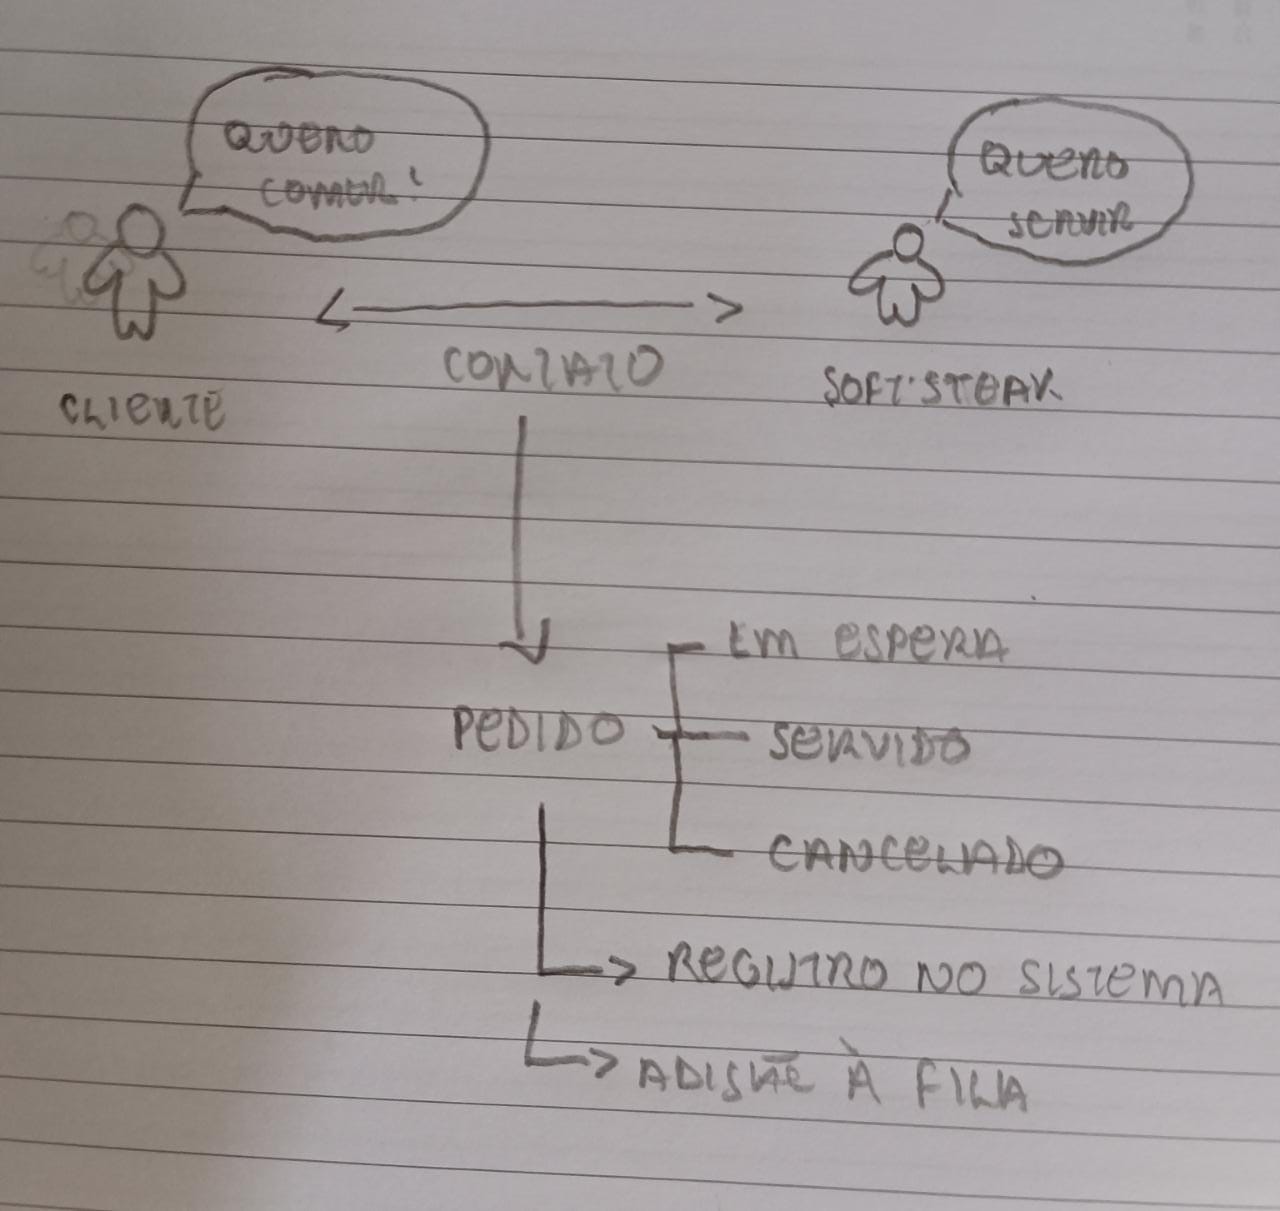 QUERO
COMER!
QUERO
SERVIR
CLIENTE
CONTATO
SOFT'STEAK
EM ESPERA
PEDIDO
SERVIDO
CANCELADO
REGISTRO NO SISTEMA
À FILA